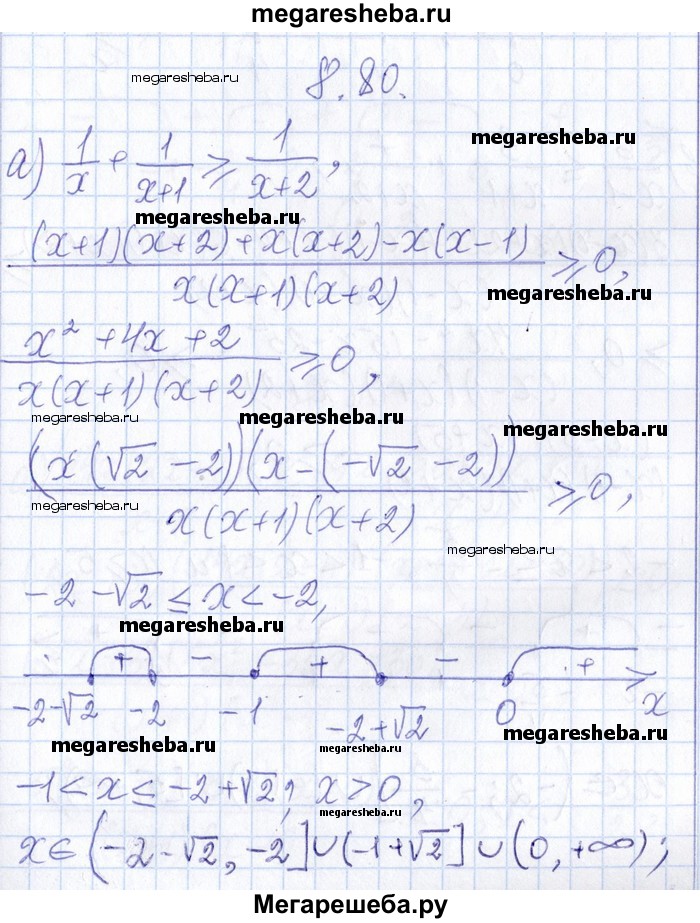 megaresheba.ru
megaresheba.ru
8.80.
megaresheba.ru
а) 1/x + 1/(x+1) ≥ 1/(x+2),
megaresheba.ru
((x+1)(x+2)+x(x+2)-x(x-1))/(x(x+1)(x+2)) ≥ 0,
megaresheba.ru
(x² + 4x + 2)/(x(x+1)(x+2)) ≥ 0,
megaresheba.ru megaresheba.ru megaresheba.ru
((x(√2 - 2))(x - (-√2 - 2)))/(x(x+1)(x+2)) ≥ 0,
megaresheba.ru
megaresheba.ru
-2 - √2 ≤ x < -2,
megaresheba.ru megaresheba.ru
+ - + - +
-2-√2 -2 -1 -2+√2 0 x
megaresheba.ru megaresheba.ru megaresheba.ru
-1 < x ≤ -2 + √2; x > 0,
x ∈ (-2-√2, -2] ∪ (-1+√2] ∪ (0, +∞);
Мегарешеба.ру